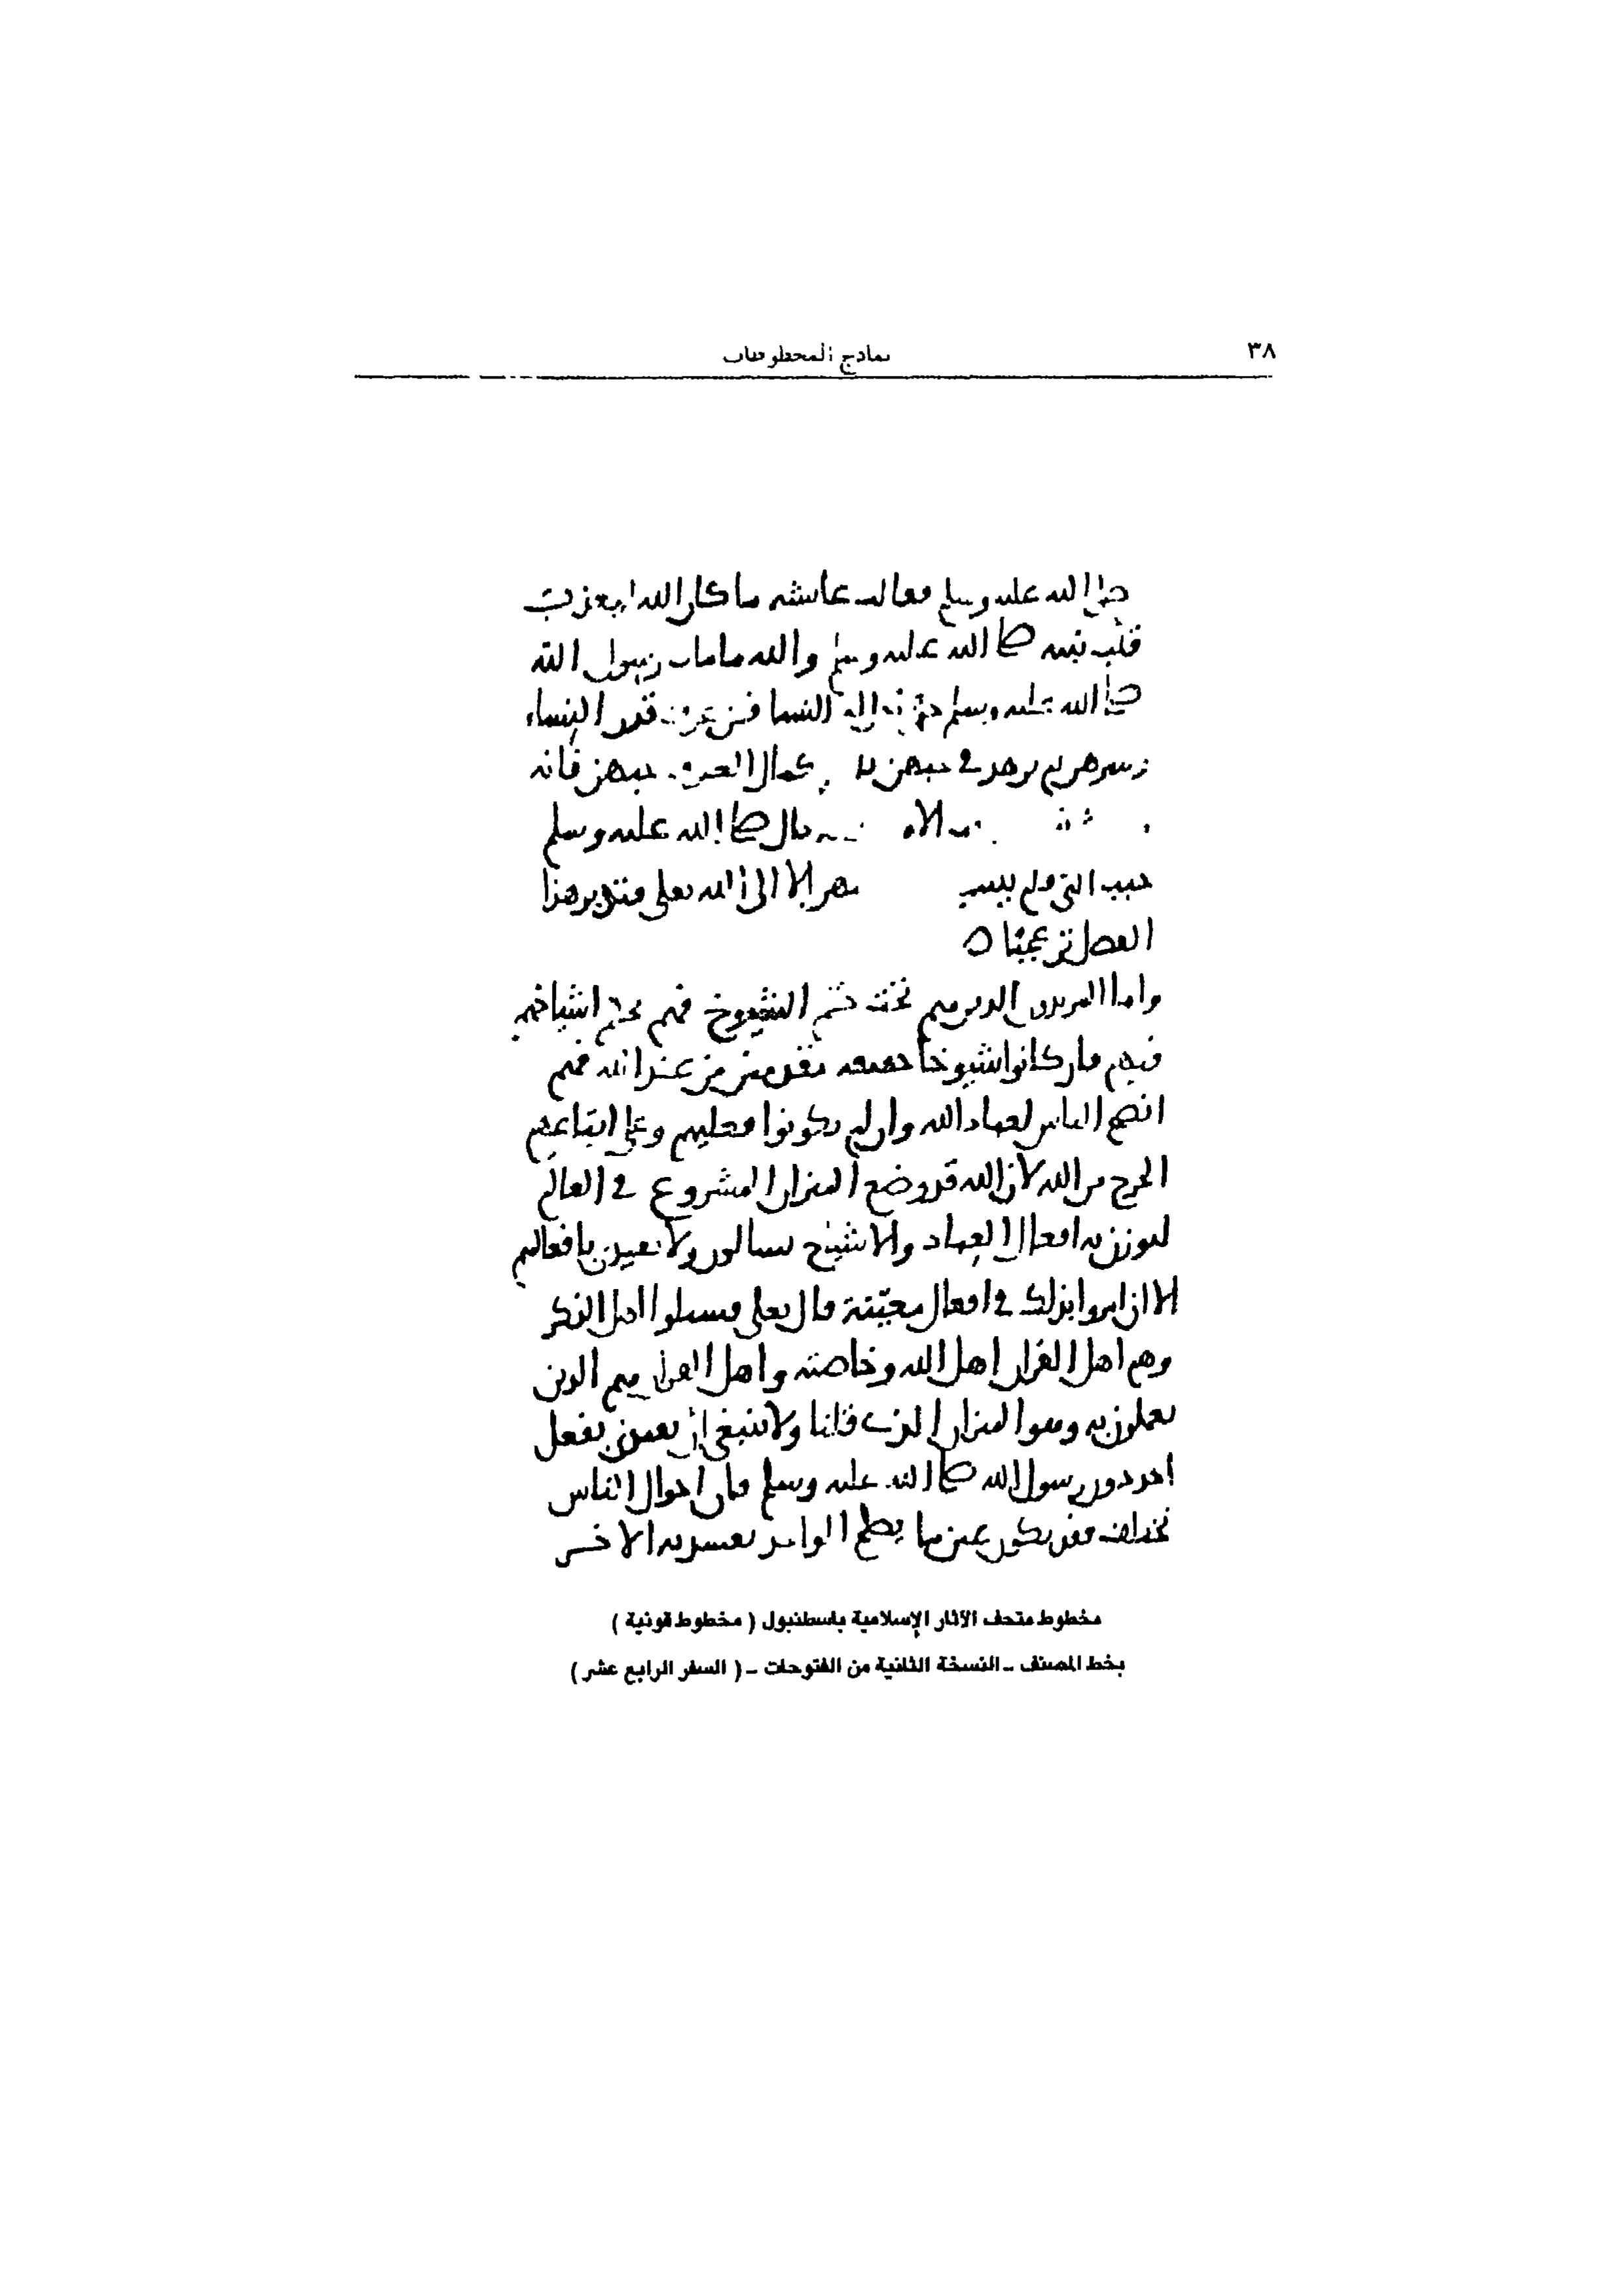 ٣٨
نماذج المخطوطات
صلى الله عليه وسلم فقالت عائشة ما كان الله ليعذب
قلب نبيه صلى الله عليه وسلم والله ما مات رسول الله
صلى الله عليه وسلم حتى النسا فمن عرف قدر النساء
وسرهن لم يزهد في حبهن كمال العرف حبهن فانه
قال صلى الله عليه وسلم
حبب الي ولم الا الى الله تعلى فتدبر هذا
الفصل تر عجبا ه
واما المريدون الذين هم تحت حكم الشيوخ فهم بحكم اشياخهم
فيهم فان كانوا شيوخا حقيقة مقدمين من عند الله فهم
انصح الناس لعباد الله وان لم يكونوا فعليهم وعلى اتباعهم
الحرج من الله لان الله قد وضع الميزان المشروع في العالم
ليوزن به افعال العباد والاشياخ يسالون ولا بافعالهم
الا ان امروا بذلك في افعال معينة قال تعلى فسيلوا اهل الذكر
وهم اهل القران اهل الله وخاصته واهل القران هم الذين
يعملون به وهو الميزان الذي قلنا ولا ينبغي ان بفعل
احد دون رسول الله صلى الله عليه وسلم فان احوال الناس
تختلف فقد يكون عين ما يصلح الواحد يفسد به الاخر
مخطوط متحف الآثار الإسلامية باسطنبول ( مخطوط قونية )
بخط المصنف - النسخة الثانية من الفتوحات - ( السفر الرابع عشر )